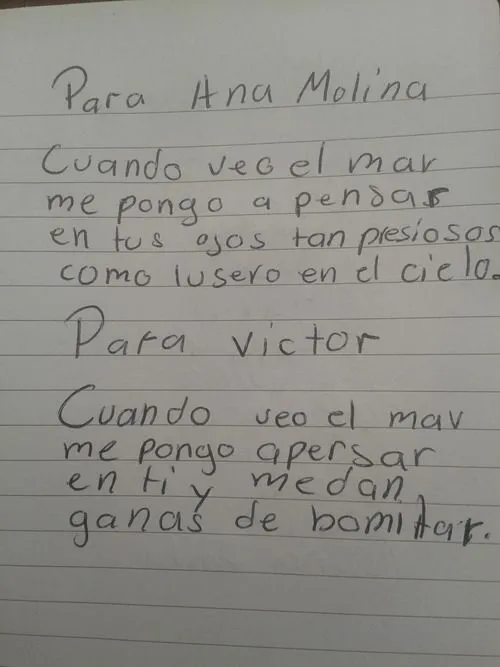 Para Ana Molina
Cuando veo el mar
me pongo a pensar
en tus ojos tan presiosos
como lusero en el cielo.
Para victor
Cuando veo el mar
me pongo apersar
en ti y me dan
ganas de bomitar.